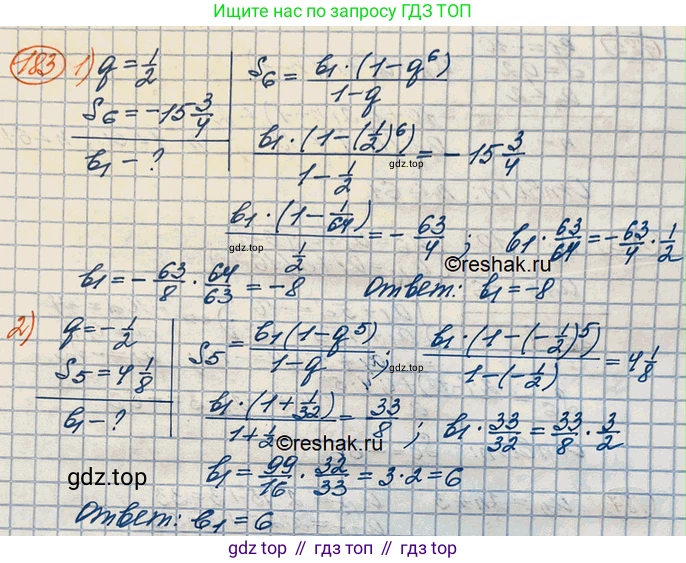 Ищите нас по запросу ГДЗ ТОП
183 1) q = 1/2
S₆ = -15 3/4
b₁ - ?
S₆ = b₁·(1-q⁶)/(1-q)
b₁·(1-(1/2)⁶)/(1-1/2) = -15 3/4
gdz.top
b₁·(1-1/64)/(1/2) = -63/4; b₁·63/64 = -63/4·1/2
gdz.top
©reshak.ru
b₁ = -63/8·64/63 = -8 Ответ: b₁ = -8
2) q = -1/2
S₅ = 4 1/8
b₁ - ?
S₅ = b₁(1-q⁵)/(1-q); b₁·(1-(-1/2)⁵)/(1-(-1/2)) = 4 1/8
gdz.top
b₁·(1+1/32)/(1+1/2) = 33/8; b₁·33/32 = 33/8·3/2
©reshak.ru
b₁ = 99/16·32/33 = 3·2 = 6
gdz.top
Ответ: b₁ = 6
gdz.top // гдз.топ // gdz.top // гдз.топ